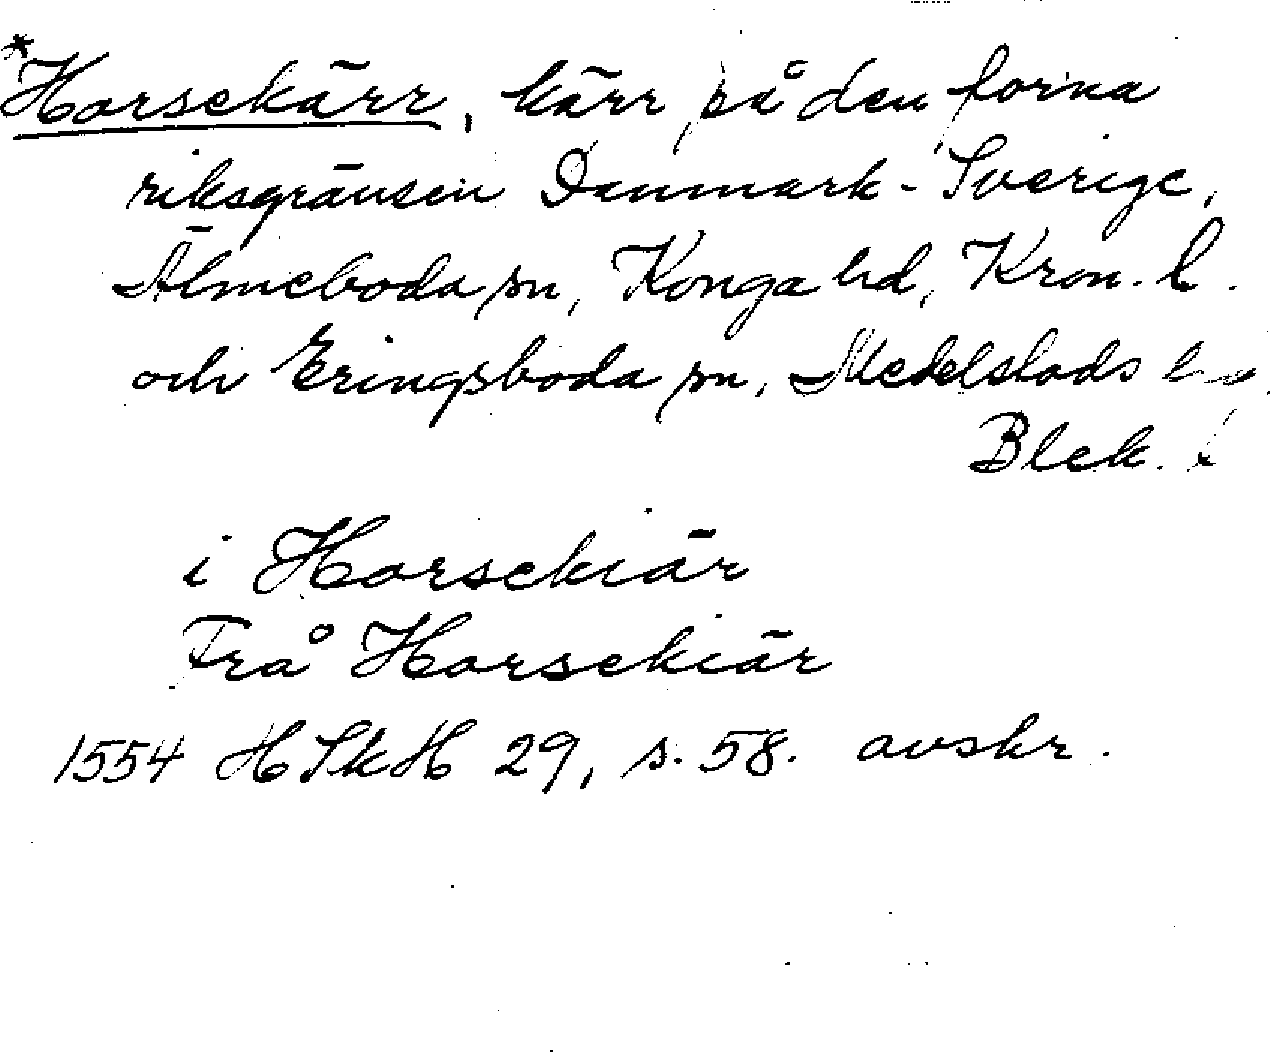 *Horsekärr, kärr på den forna
riksgränsen Danmark-Sverige,
Älmeboda sn, Konga hd, Kron. l.
och Eringsboda sn, Medelstads hd.
Blek. l
i Horsekiär
Frå Horsekiär
1554 HSkH 29, s. 58. avskr.